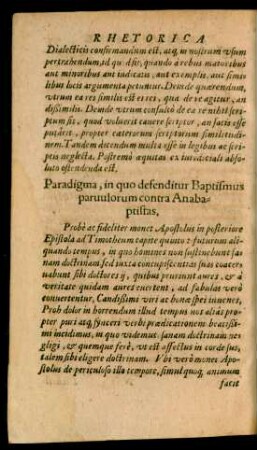 RHETORICA
Dialecticis confirmandum est, atq; in nostrum vsum
pertrahendum, id quod fit, quando à rebus maioribus
aut minoribus aut iudicatis, aut exemplis, aut simi-
libus locis argumenta petuntur. Deinde quærendum,
vtrum ea res similis est ei rei, qua de re agitur, an
dissimilis. Deinde vtrum consultò de ea re nihil scri-
ptum sit, quod voluerit cauere scriptor, an satis esse
putârit, propter cæterorum scriptorum similitudi-
nem. Tandem dicendum multa esse in legibus ac scri-
ptis neglecta. Postremò æquitas ex iuridiciali abso-
luto ostendenda est.
Paradigma, in quo defenditur Baptismus
paruulorum contra Anaba-
ptistas,
Probè ac fideliter monet Apostolus in posteriore
Epistola ad Timotheum capite quarto: futurum ali-
quando tempus, in quo homines non sustinebunt sa-
nam doctrinam, sed iuxta concupiscentias suas coacer-
uabunt sibi doctores, quibus pruriunt aures, & à
veritate quidam aures euertent, ad fabulas verò
conuertentur, Candissimi viri ac bonæ spei iuuenes,
Proh dolor in horrendum illud tempus nos aliàs pro-
pter puri atq; synceri verbi prædicationem beatissi-
mi incidimus, in quo videmus sanam doctrinam ne-
gligi, & quemque ferè, vt est affectus in corde suo,
talem sibi eligere doctrinam. Vbi verò monet Apo-
stolus de periculoso illo tempore, simul quoq; animum
facit